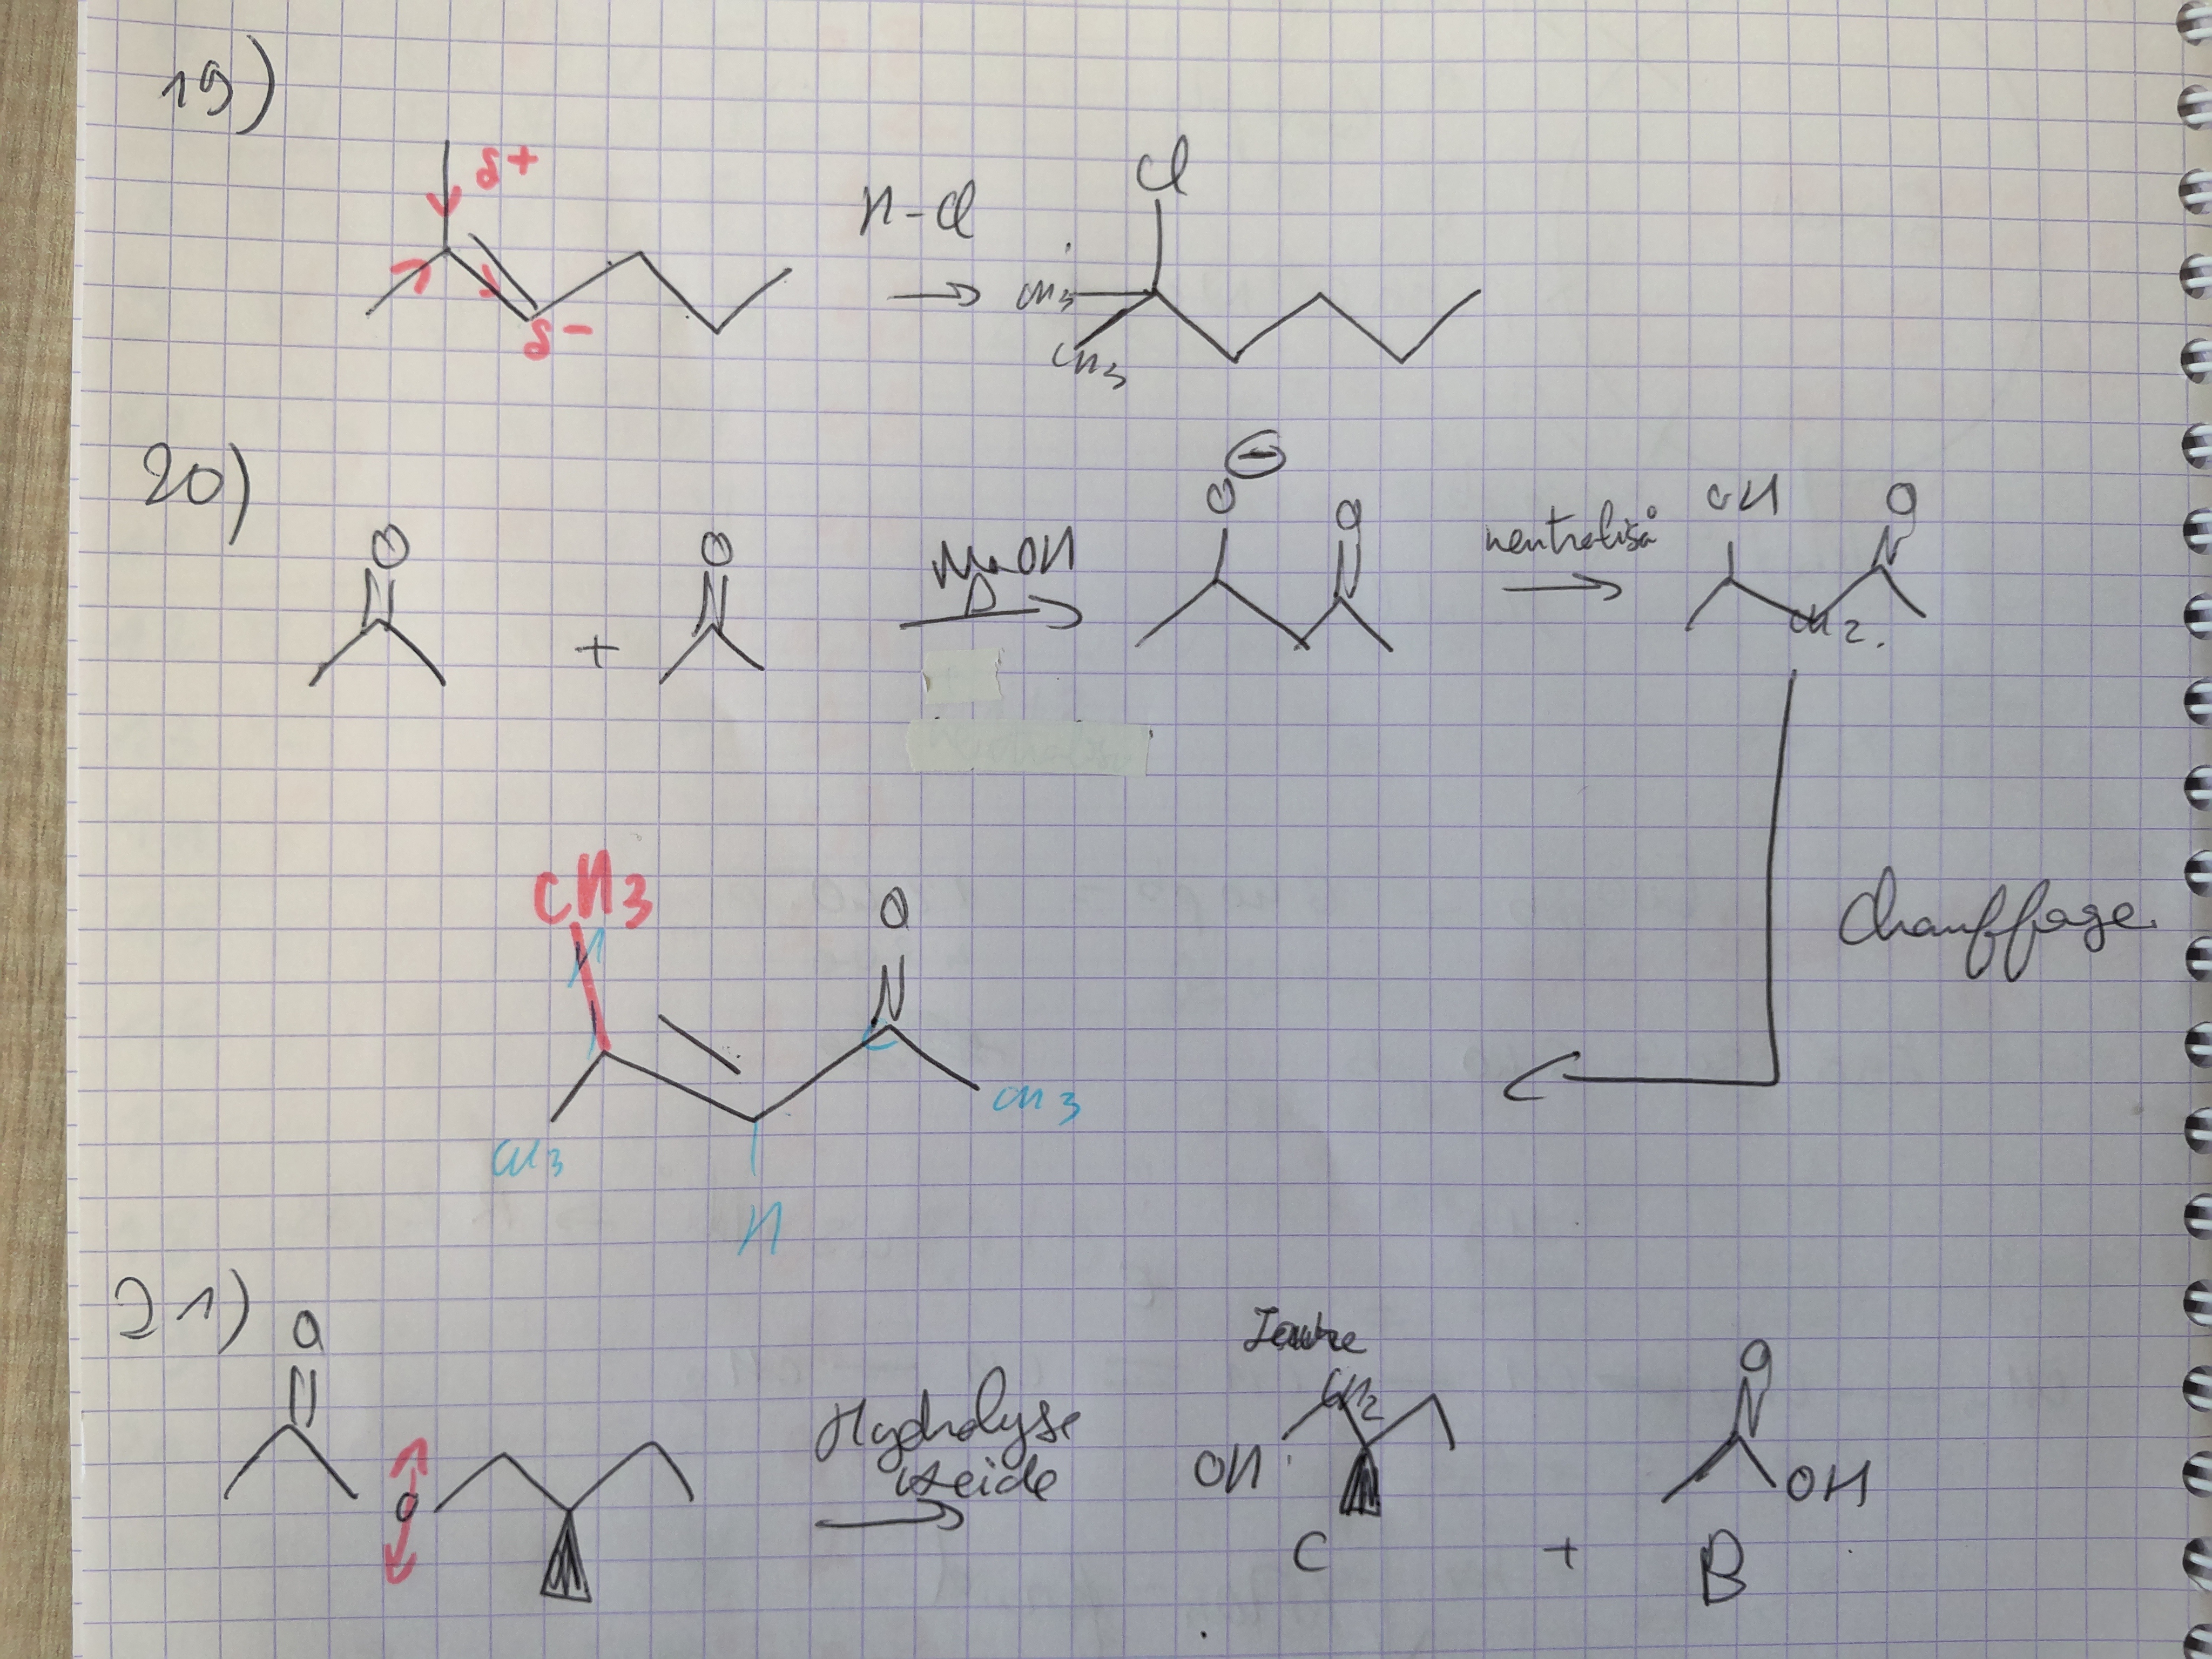 19)
δ+
δ-
H-Cl
Cl
CH3
CH3
20)
O
+
O
NaOH
Δ
O ⊖
O
neutralis°
OH
O
CH2
Chauffage
CH3
H
O
C
CH3
CH3
H
21)
O
O
Hydrolyse
acide
CH2
OH
C
+
O
OH
B